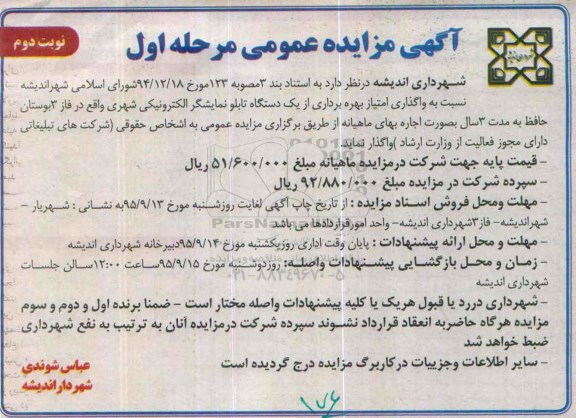 نوبت دوم
آگهی مزایده عمومی مرحله اول
شهرداری اندیشه درنظر دارد به استناد بند ۳مصوبه ۱۲۳مورخ ۹۴/۱۲/۱۸شورای اسلامی شهراندیشه
نسبت به واگذاری امتیاز بهره برداری از یک دستگاه تابلو نمایشگر الکترونیکی شهری واقع در فاز ۳بوستان
حافظ به مدت ۳سال بصورت اجاره بهای ماهیانه از طریق برگزاری مزایده عمومی به اشخاص حقوقی (شرکت های تبلیغاتی
دارای مجوز فعالیت از وزارت ارشاد )واگذار نماید.
- قیمت پایه جهت شرکت درمزایده ماهیانه مبلغ ۵۱/۶۰۰/۰۰۰ ریال
- سپرده شرکت در مزایده مبلغ ۹۲/۸۸۰/۰۰۰ ریال
- مهلت ومحل فروش اسناد مزایده : از تاریخ چاپ آگهی لغایت روزشنبه مورخ ۹۵/۹/۱۳به نشانی : شهریار -
شهراندیشه- فاز۳شهرداری اندیشه- واحد امورقراردادها می باشد
- مهلت و محل ارائه پیشنهادات : پایان وقت اداری روزیکشنبه مورخ ۹۵/۹/۱۴دبیرخانه شهرداری اندیشه
- زمان و محل بازگشایی پیشنهادات واصله: روزدوشنبه مورخ ۹۵/۹/۱۵ساعت ۱۲:۰۰سالن جلسات
شهرداری اندیشه
- شهرداری دررد یا قبول هریک یا کلیه پیشنهادات واصله مختار است - ضمنا برنده اول و دوم و سوم
مزایده هرگاه حاضربه انعقاد قرارداد نشوند سپرده شرکت درمزایده آنان به ترتیب به نفع شهرداری
ضبط خواهد شد
- سایر اطلاعات وجزییات درکاربرگ مزایده درج گردیده است
عباس شوندی
شهردار اندیشه
۱۷۶
ParsNamadData
۰۲۱-۸۸۳۴۹۶۷۰-۵